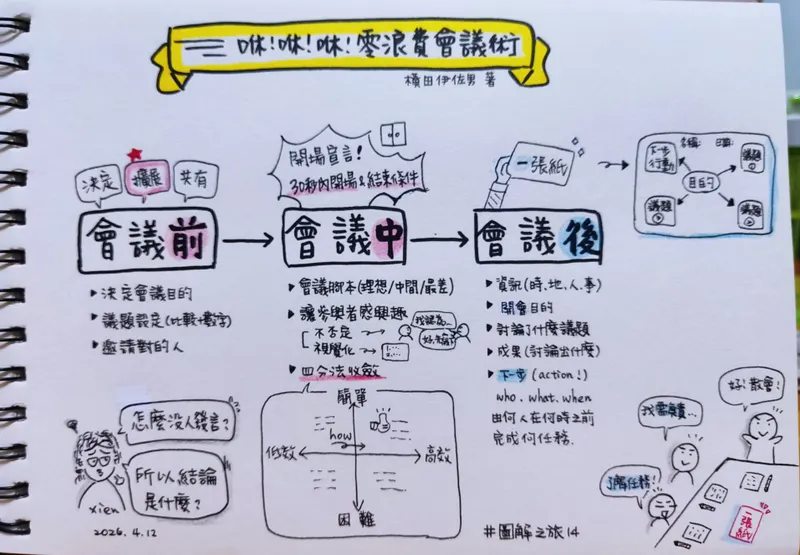 咻!咻!咻!零浪費會議術
橫田伊佐男 著
決定
擴展
共有
會議前
▶決定會議目的
▶議題設定(比較+數字)
▶邀請對的人
開場宣言!
30秒內開場&結束條件
會議中
▶會議腳本(理想/中間/最差)
▶讓參與者感興趣
不否定
視覺化
我認為…
▶四分法收斂
簡單
how
低效
高效
困難
一張紙
會議後
▶資訊(時、地、人、事)
▶開會目的
▶討論了什麼議題
▶成果(討論出什麼)
▶下一步(action!)
who、what、when
由何人在何時之前
完成何任務
下一步
行動
議題
目的
議題
議題
怎麼沒人發言?
所以結論
是什麼?
xien
2026.4.12
#圖解之旅14
好!散會!
我需負責…
了解任務!
一張紙